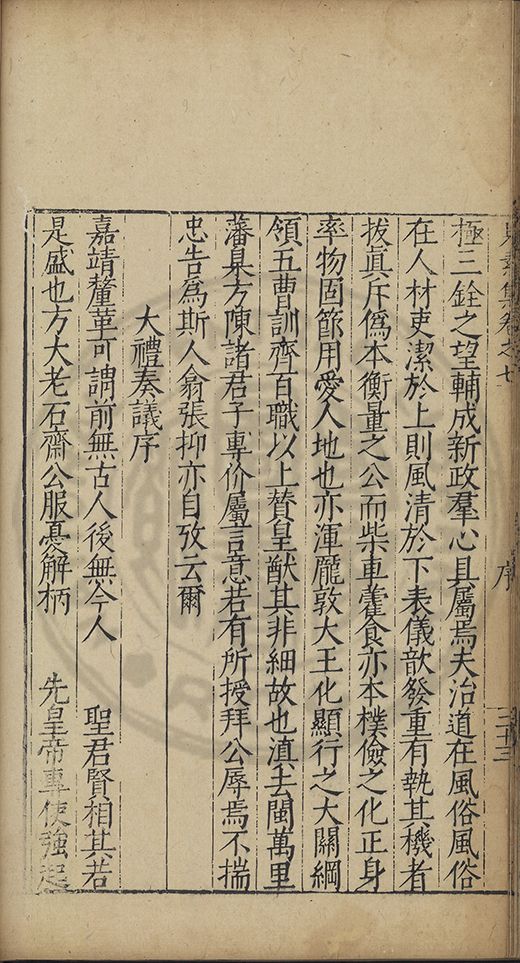 集卷之七
序
二十三
極三銓之望輔成新政羣心具屬焉夫治道在風俗風俗
在人材吏潔於上則風清於下表儀歆發重有執其機者
拔眞斥僞本衡量之公而柴車藿食亦本樸儉之化正身
率物固節用愛人地也亦渾龐敦大王化顯行之大關綱
領五曹訓齊百職以上贊皇猷其非細故也滇去閩萬里
藩臬方陳諸君子專价屬言意若有所授拜公辱焉不揣
忠告爲斯人翕張抑亦自攷云爾
大禮奏議序
嘉靖釐革可謂前無古人後無今人 聖君賢相其若
是盛也方大老石齋公服憂解柄 先皇帝專使強起